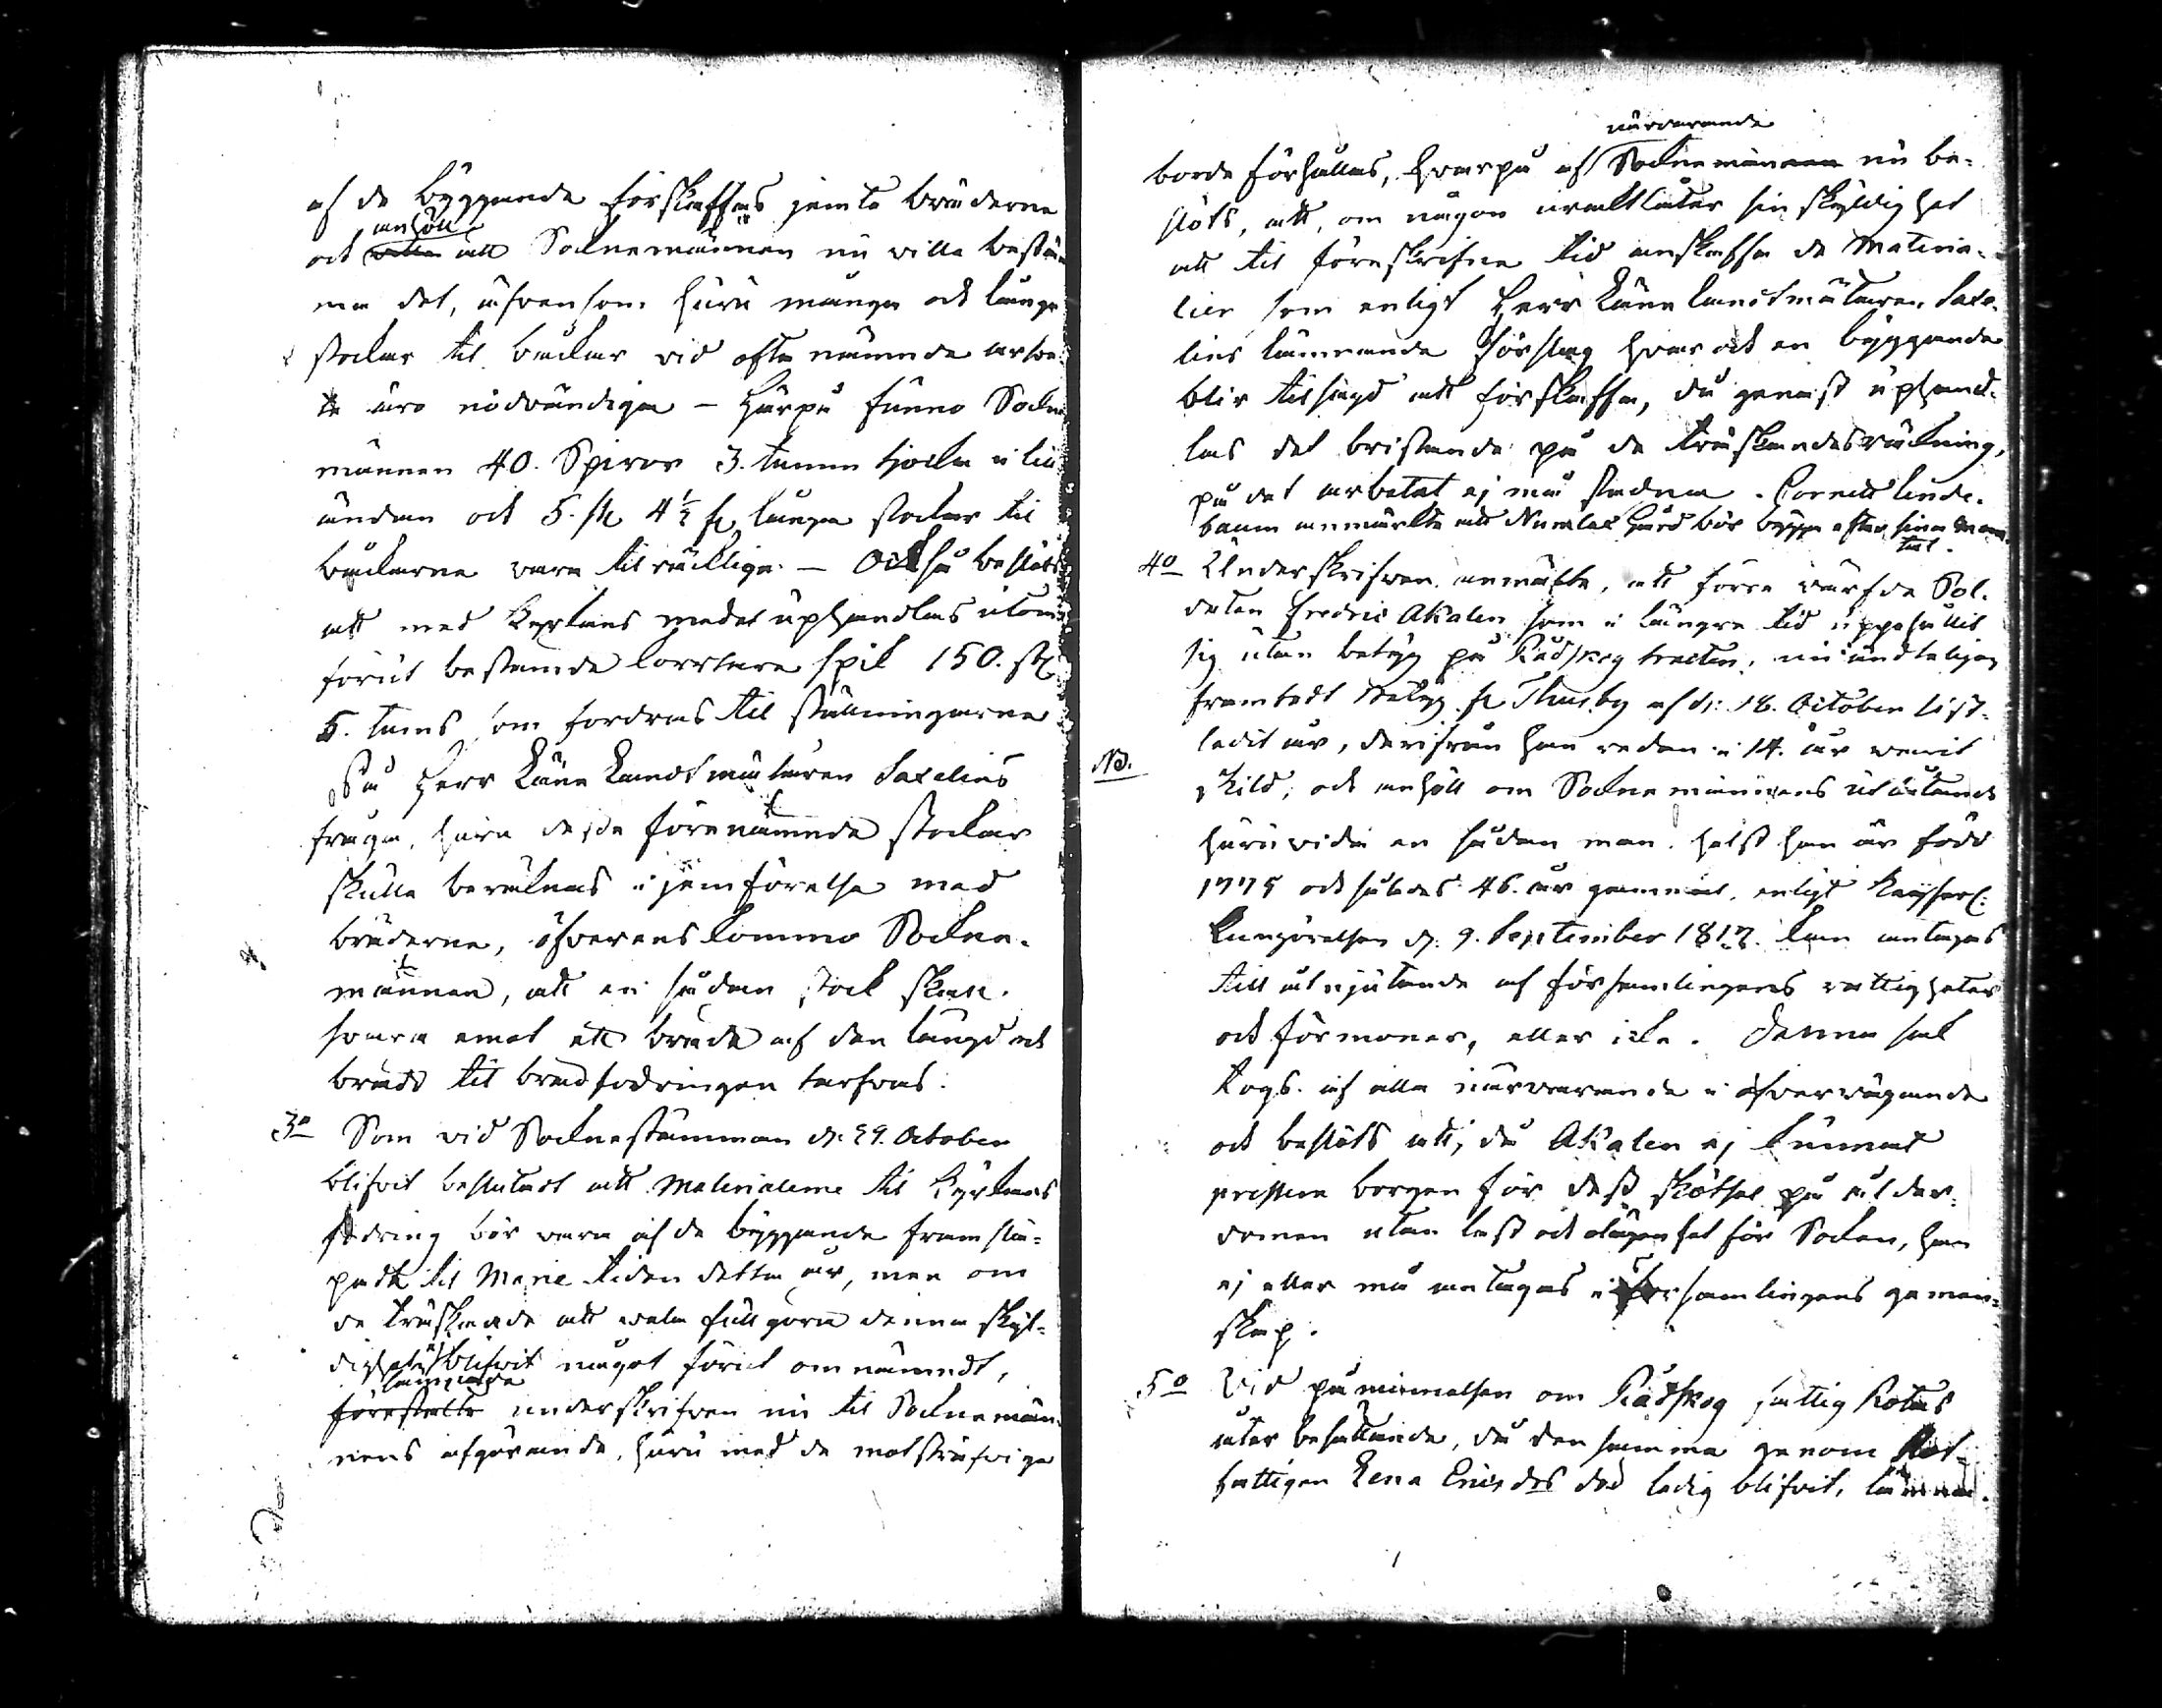 af de byggande förskaffas jemte bräderne
och anhöll att Sockne männen nu ville bestäm
ma det, äfvensom huru många och långa
stockar til bockar vid ofta nämnde arbe-
te äro nödvändiga – Härpå funno Sockne
männen 40. Spiror 3. tumm tjocka i lill
ändan och 5. st. 4½ f. långa stockar til
bockarne vara tilräcklige. – Också beslöts
att med Kyrkans medel uphandlas utom
förut bestämde korrtare spik 150. st.
5. tums som fordras til ställningarne
På Herr Läne Landtmätaren Saxelius
fråga, huru desse förenämnde stockar
skulle beräknas i jemförelse med
bräderne, öfverenskommo Sockne-
männen, att en sådan stock skall
svara emot ett bräde af den längd och
bredd til brädfodringen tarfvas.
3o Som vid Sockne stämman d. 29. October
blifvit beslutadt att Materialerne til Kyrkans
fodring bör vara af de byggande fram slä-
pade til Marie tiden detta år, men om
de tröskande att vela fullgöra denna skyl-
dighet ej blifvit något förut omnämndt,
lämnade
förestälte underskrifven nu til Sockne män-
nens afgörande, huru med de motsträfvige
närvarande
borde förhållas, hvarpå af Sockne männen nu be-
slöts, att, om någon uraktlåter sin skyldighet
att til föreskrifne tid anskaffa de Materia-
lier som enligt Herr Läne Landtmätaren Saxe-
lius lämnande förslag hvar och en byggande
blir tilsagd att förskaffa, då genast uphand-
las det bristande på de tröskandes räkning,
på det arbetet ej må stadna. Cornett Linde-
baum anmärkte att Numlax Gård bör bygga efter sina man-
tal.
4o Underskrifven anmälte, att förre värfde Sol-
daten Fredric Akalen som i längre tid uppehållit
sig utan betyg på Rådskog trakten, nu ändteligen
framtedt betyg fr. Thusby af d. 18. October sist-
ledit år, derifrån han redan i 14. år varit
NB. skild, och anhöll om Sockne männens utlåtande
huruvida en sådan man, helst han är född
1775 och således 46. år gammal, enligt Keyserl.
Kungörelsen d. 9. September 1817. kan antagas
till åtnjutande af församlingens rättigheter
och förmoner, eller icke. Denna sak
togs af alla närvarande i öfvervägande
och beslöts att, då Akalen ej kunnat
prestera borgen för dess skötsel på ålder-
domen utan last och olägenhet för Socken, han
ej eller må antagas i församlingens gemen-
skap.
5o Vid påminnelsen om Rådskog fattig Rotas
åter besättande, då den samma genom Rot-
fattigen Lena Ericsdrs död ledig blifvit, lämna-